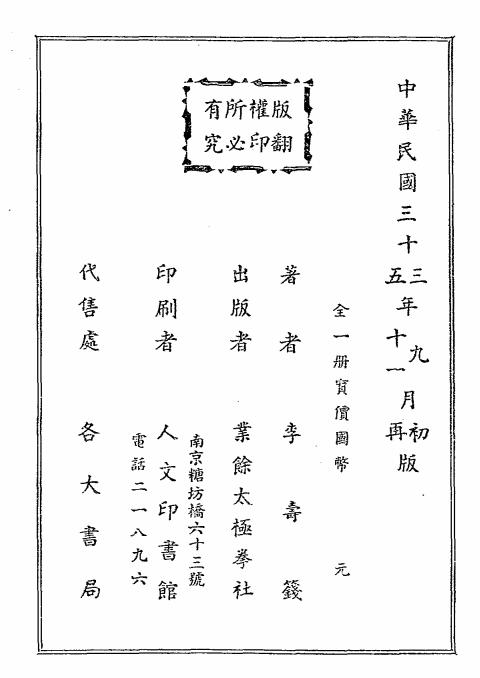 中華民國三十三五年九十一月初再版
全一册實價國幣 元
版權所有
翻印必究
著者 李壽籛
出版者 業餘太極拳社
南京糖坊橋六十三號
印刷者 人文印書館
電話二一八九六
代售處 各大書局